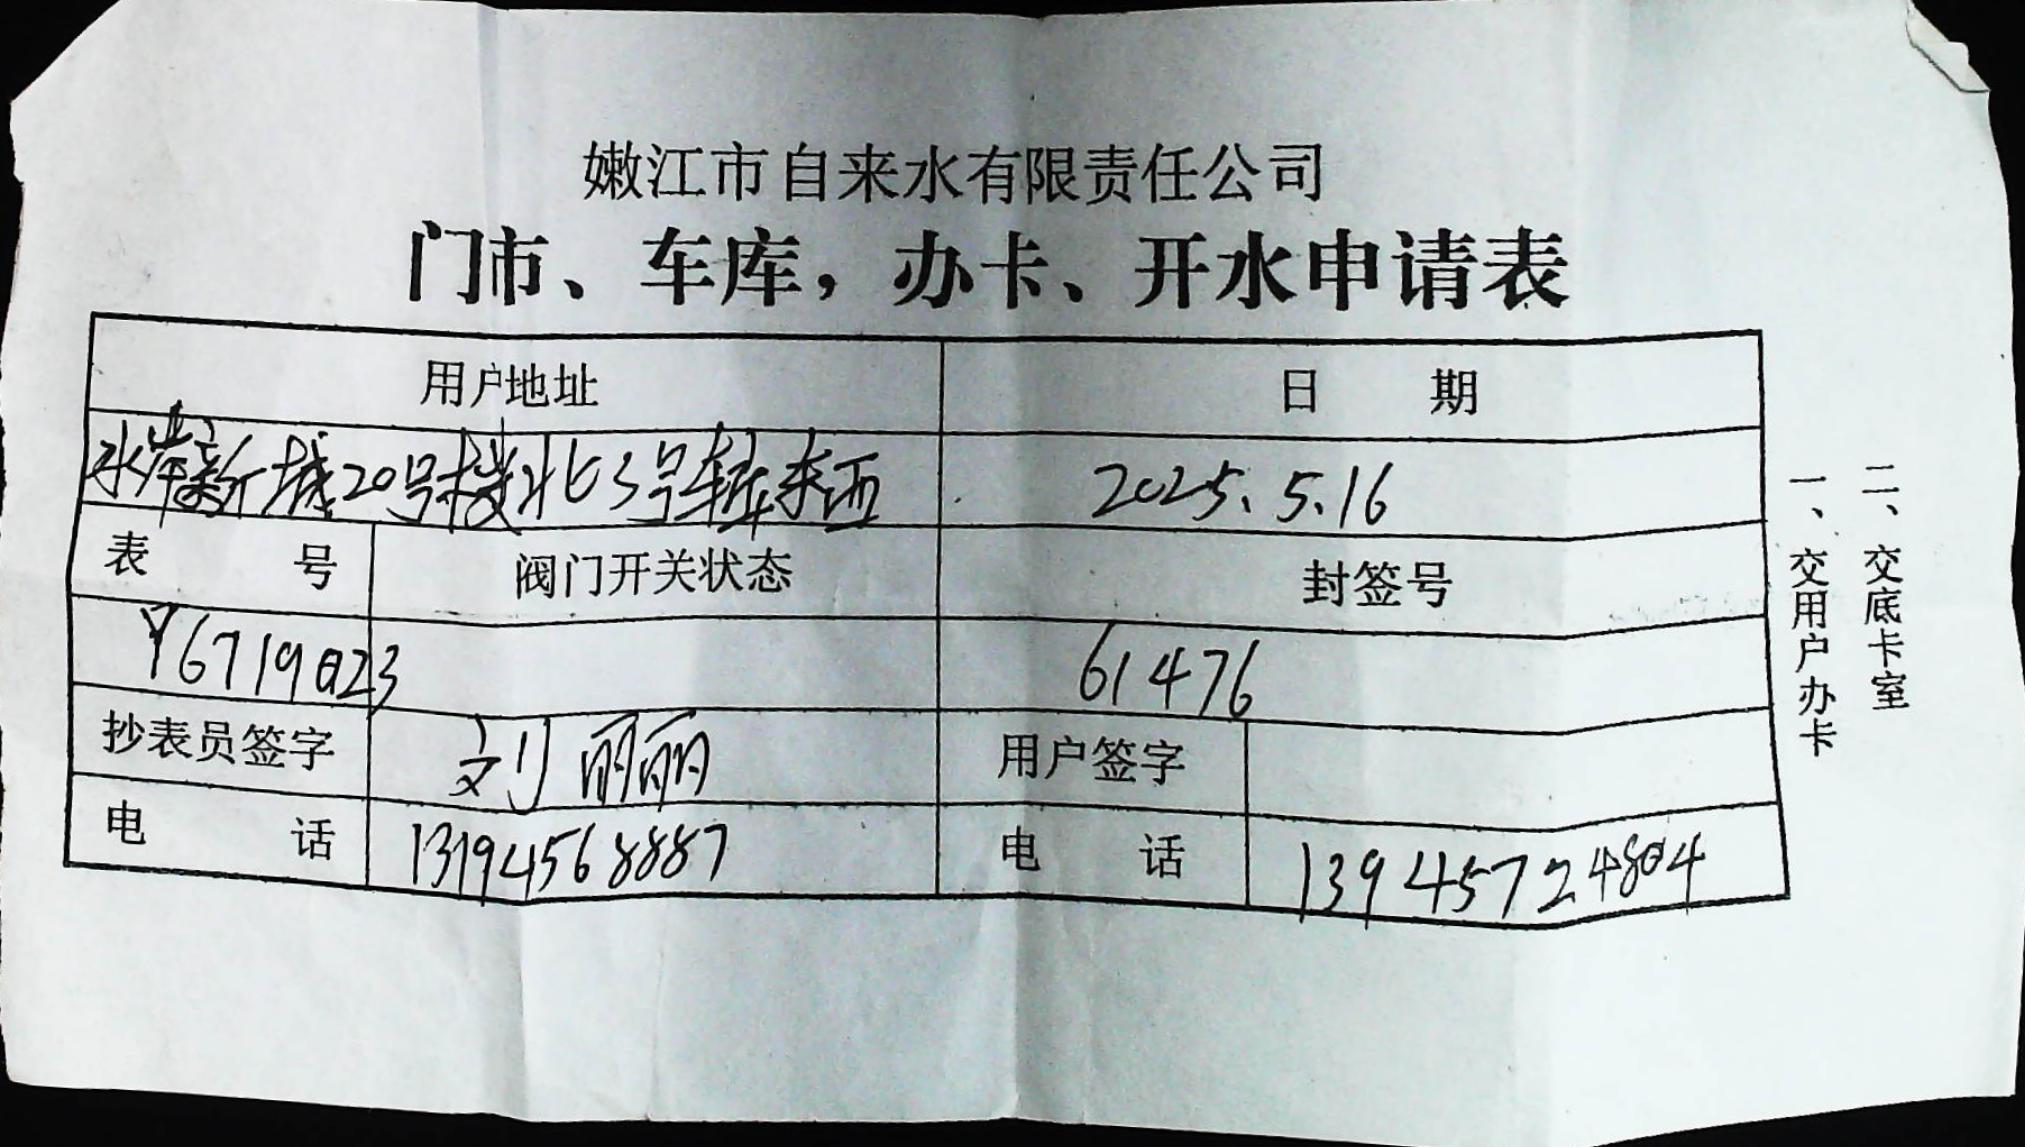 嫩江市自来水有限责任公司
门市、车库，办卡、开水申请表
用户地址 日 期
水岸新城20号楼北3号车库东西 2025.5.16
表 号 阀门开关状态 封签号
Y6719023 61476
抄表员签字 刘丽丽 用户签字
电 话 13194568887 电 话 13945724804
一、交用户办卡
二、交底卡室